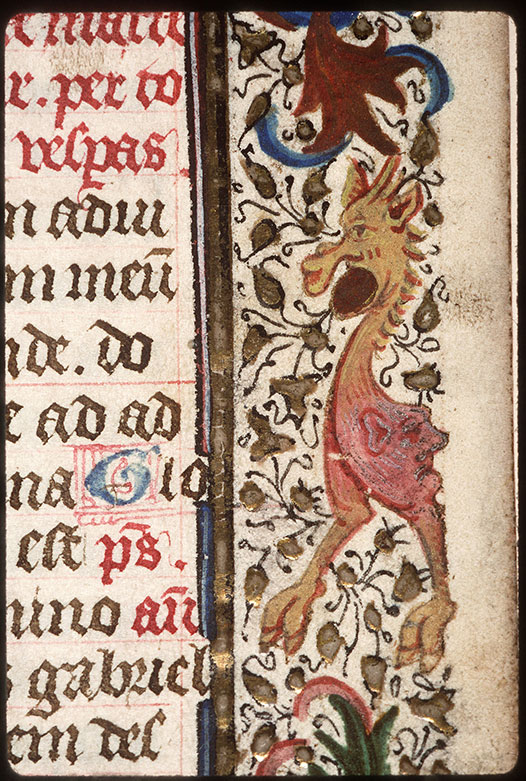 r. per to
vespas.
m adiu
m meū
nde. do
e ad ad
na Glo
est ps̄.
uino añ
gabriel
em des